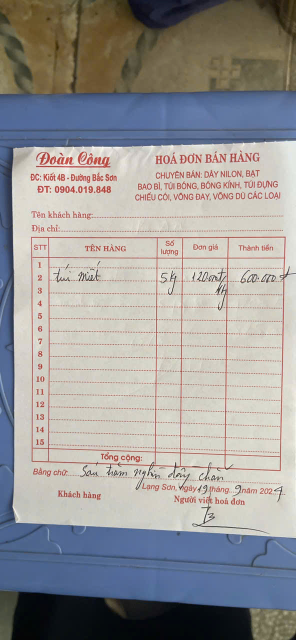 Đoàn Công
ĐC: Kiốt 4B - Đường Bắc Sơn
ĐT: 0904.019.848
HOÁ ĐƠN BÁN HÀNG
CHUYÊN BÁN: DÂY NILON, BẠT
BAO BÌ, TÚI BÓNG, BÓNG KÍNH, TÚI ĐỰNG
CHIẾU CÓI, VÕNG ĐAY, VÕNG DÙ CÁC LOẠI
Tên khách hàng:
Địa chỉ:
STT TÊN HÀNG Số lượng Đơn giá Thành tiền
1
2 túi miết 5kg 600.000đ
3
4
5
6
7
8
9
10
11
12
13
14
15
Tổng cộng:
Bằng chữ: Sáu trăm nghìn đồng chẵn
Lạng Sơn, ngày 19 tháng 9 năm 2024
Khách hàng Người viết hoá đơn